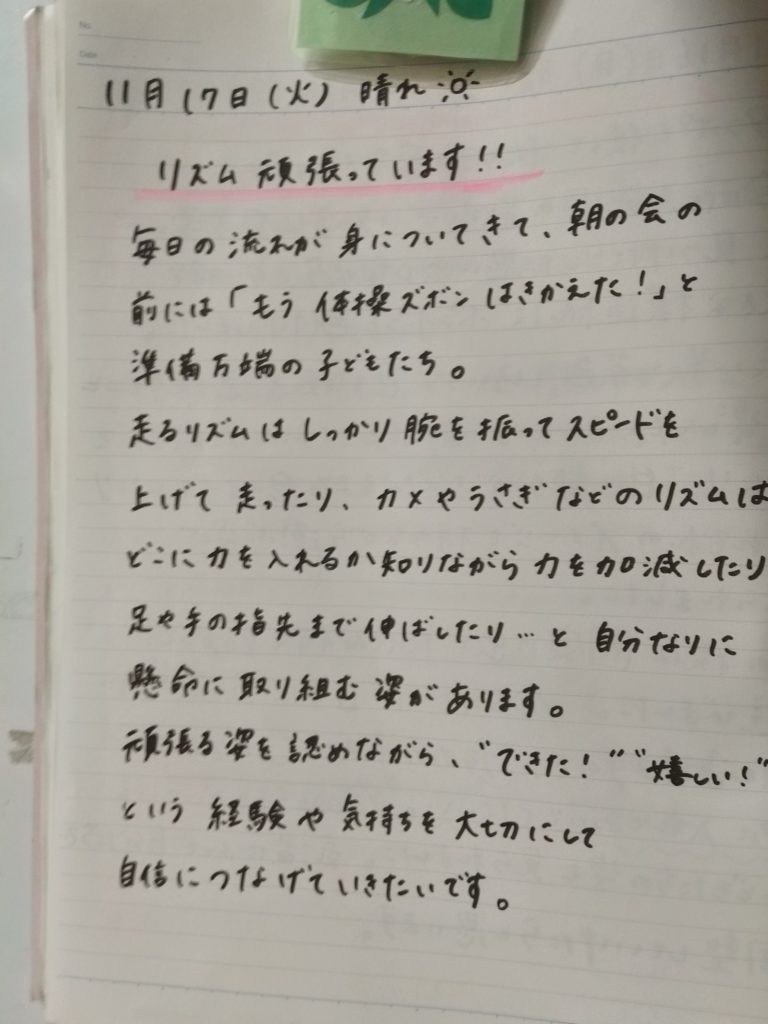 No.
Date
11月17日(火) 晴れ
リズム 頑張っています!!
毎日の流れが身についてきて、朝の会の
前には「もう体操ズボンはきかえた!」と
準備万端の子どもたち。
走るリズムはしっかり腕を振ってスピードを
上げて走ったり、カメやうさぎなどのリズムは
どこに力を入れるか知りながら力を加減したり
足や手の指先まで伸ばしたり…と自分なりに
懸命に取り組む姿があります。
頑張る姿を認めながら、"できた!""嬉しい!"
という経験や気持ちを大切にして
自信につなげていきたいです。